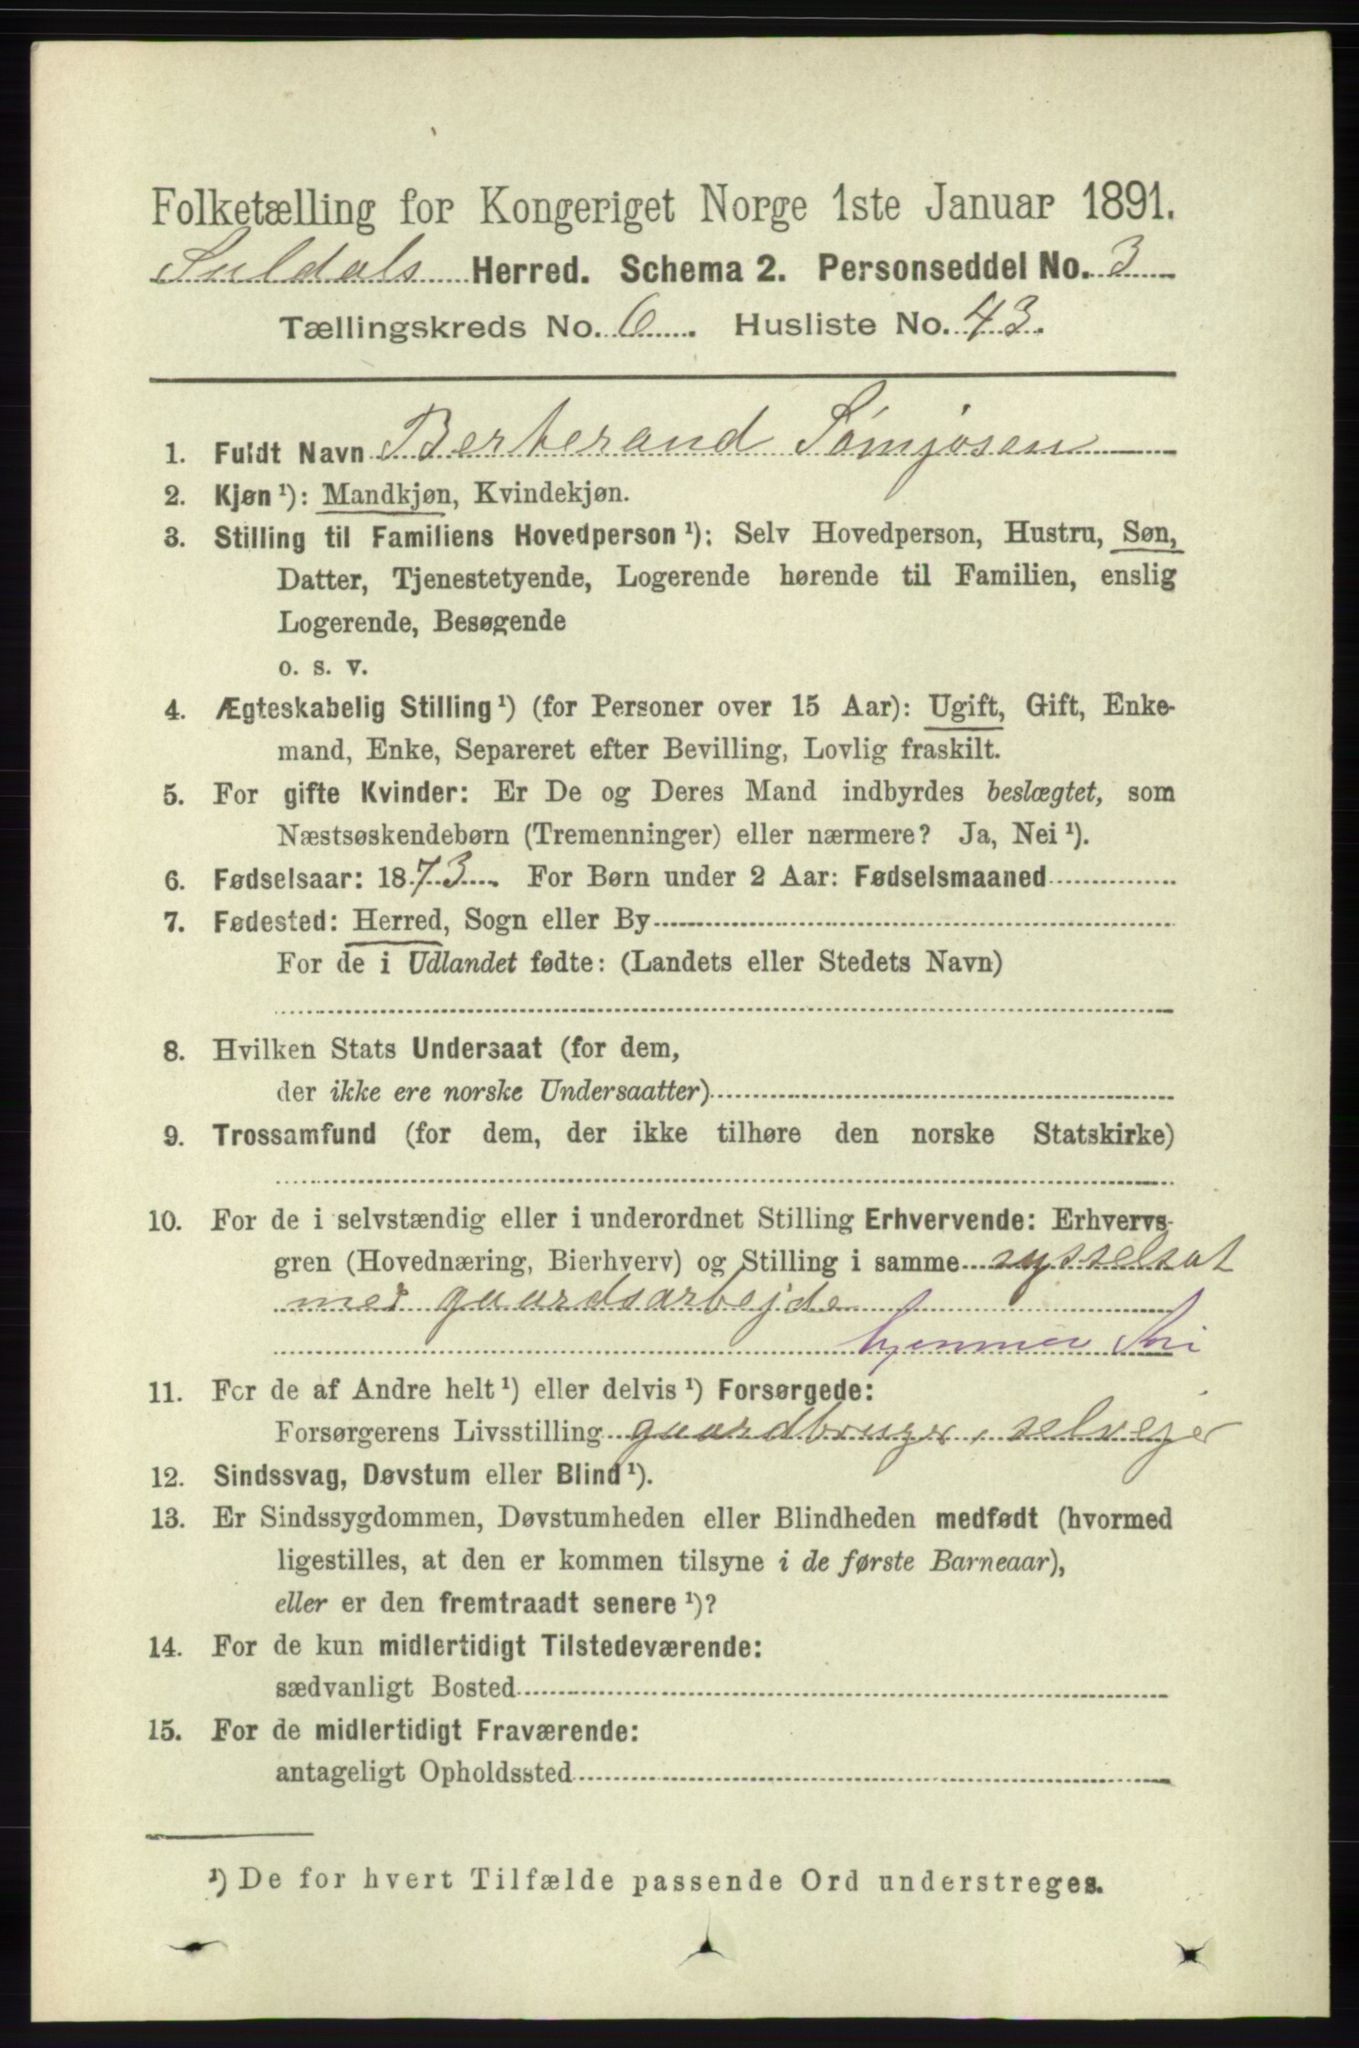 Folketælling for Kongeriget Norge 1ste Januar 1891.
Suldals Herred. Schema 2. Personseddel No. 3
Tællingskreds No. 6. Husliste No. 43.
1. Fuldt Navn Berterand Sømjosen
2. Kjøn ¹): Mandkjøn, Kvindekjøn.
3. Stilling til Familiens Hovedperson ¹): Selv Hovedperson, Hustru, Søn,
Datter, Tjenestetyende, Logerende hørende til Familien, enslig
Logerende, Besøgende
o. s. v.
4. Ægteskabelig Stilling ¹) (for Personer over 15 Aar): Ugift, Gift, Enke-
mand, Enke, Separeret efter Bevilling, Lovlig fraskilt.
5. For gifte Kvinder: Er De og Deres Mand indbyrdes beslægtet, som
Næstsøskendebørn (Tremenninger) eller nærmere? Ja, Nei ¹).
6. Fødselsaar: 1873. For Børn under 2 Aar: Fødselsmaaned
7. Fødested: Herred, Sogn eller By
For de i Udlandet fødte: (Landets eller Stedets Navn)
8. Hvilken Stats Undersaat (for dem,
der ikke ere norske Undersaatter)
9. Trossamfund (for dem, der ikke tilhøre den norske Statskirke)
10. For de i selvstændig eller i underordnet Stilling Erhvervende: Erhvervs-
gren (Hovednæring, Bierhverv) og Stilling i samme sysselsat
med gaardsarbejde
hjemmev
11. For de af Andre helt ¹) eller delvis ¹) Forsørgede:
Forsørgerens Livsstilling gaardbruger, selvejer
12. Sindssvag, Døvstum eller Blind ¹).
13. Er Sindssygdommen, Døvstumheden eller Blindheden medfødt (hvormed
ligestilles, at den er kommen tilsyne i de første Barneaar),
eller er den fremtraadt senere ¹)?
14. For de kun midlertidigt Tilstedeværende:
sædvanligt Bosted
15. For de midlertidigt Fraværende:
antageligt Opholdssted
¹) De for hvert Tilfælde passende Ord understreges.